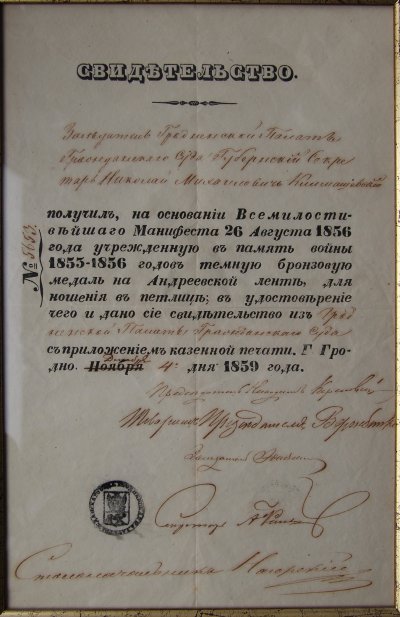 СВИДѢТЕЛЬСТВО.
Засѣдатель Гродненской Палаты
Гражданскаго Суда Губернскій Секре
тарь Николай Михайловичъ
получилъ, на основаніи Всемилости-
вѣйшаго Манифеста 26 Августа 1856
года учрежденную въ память войны
1853-1856 годовъ темную бронзовую
медаль на Андреевской лентѣ, для
ношенія въ петлицѣ; въ удостовѣреніе
чего и дано сіе свидѣтельство изъ Грод
ненской Палаты Гражданскаго Суда
съ приложеніемъ казенной печати. Г. Гро-
дно. Ноября Декабря 4 дня 1859 года.
№
Товарищъ Предсѣдателя
Засѣдатель
Секретарь
Столоначальникъ